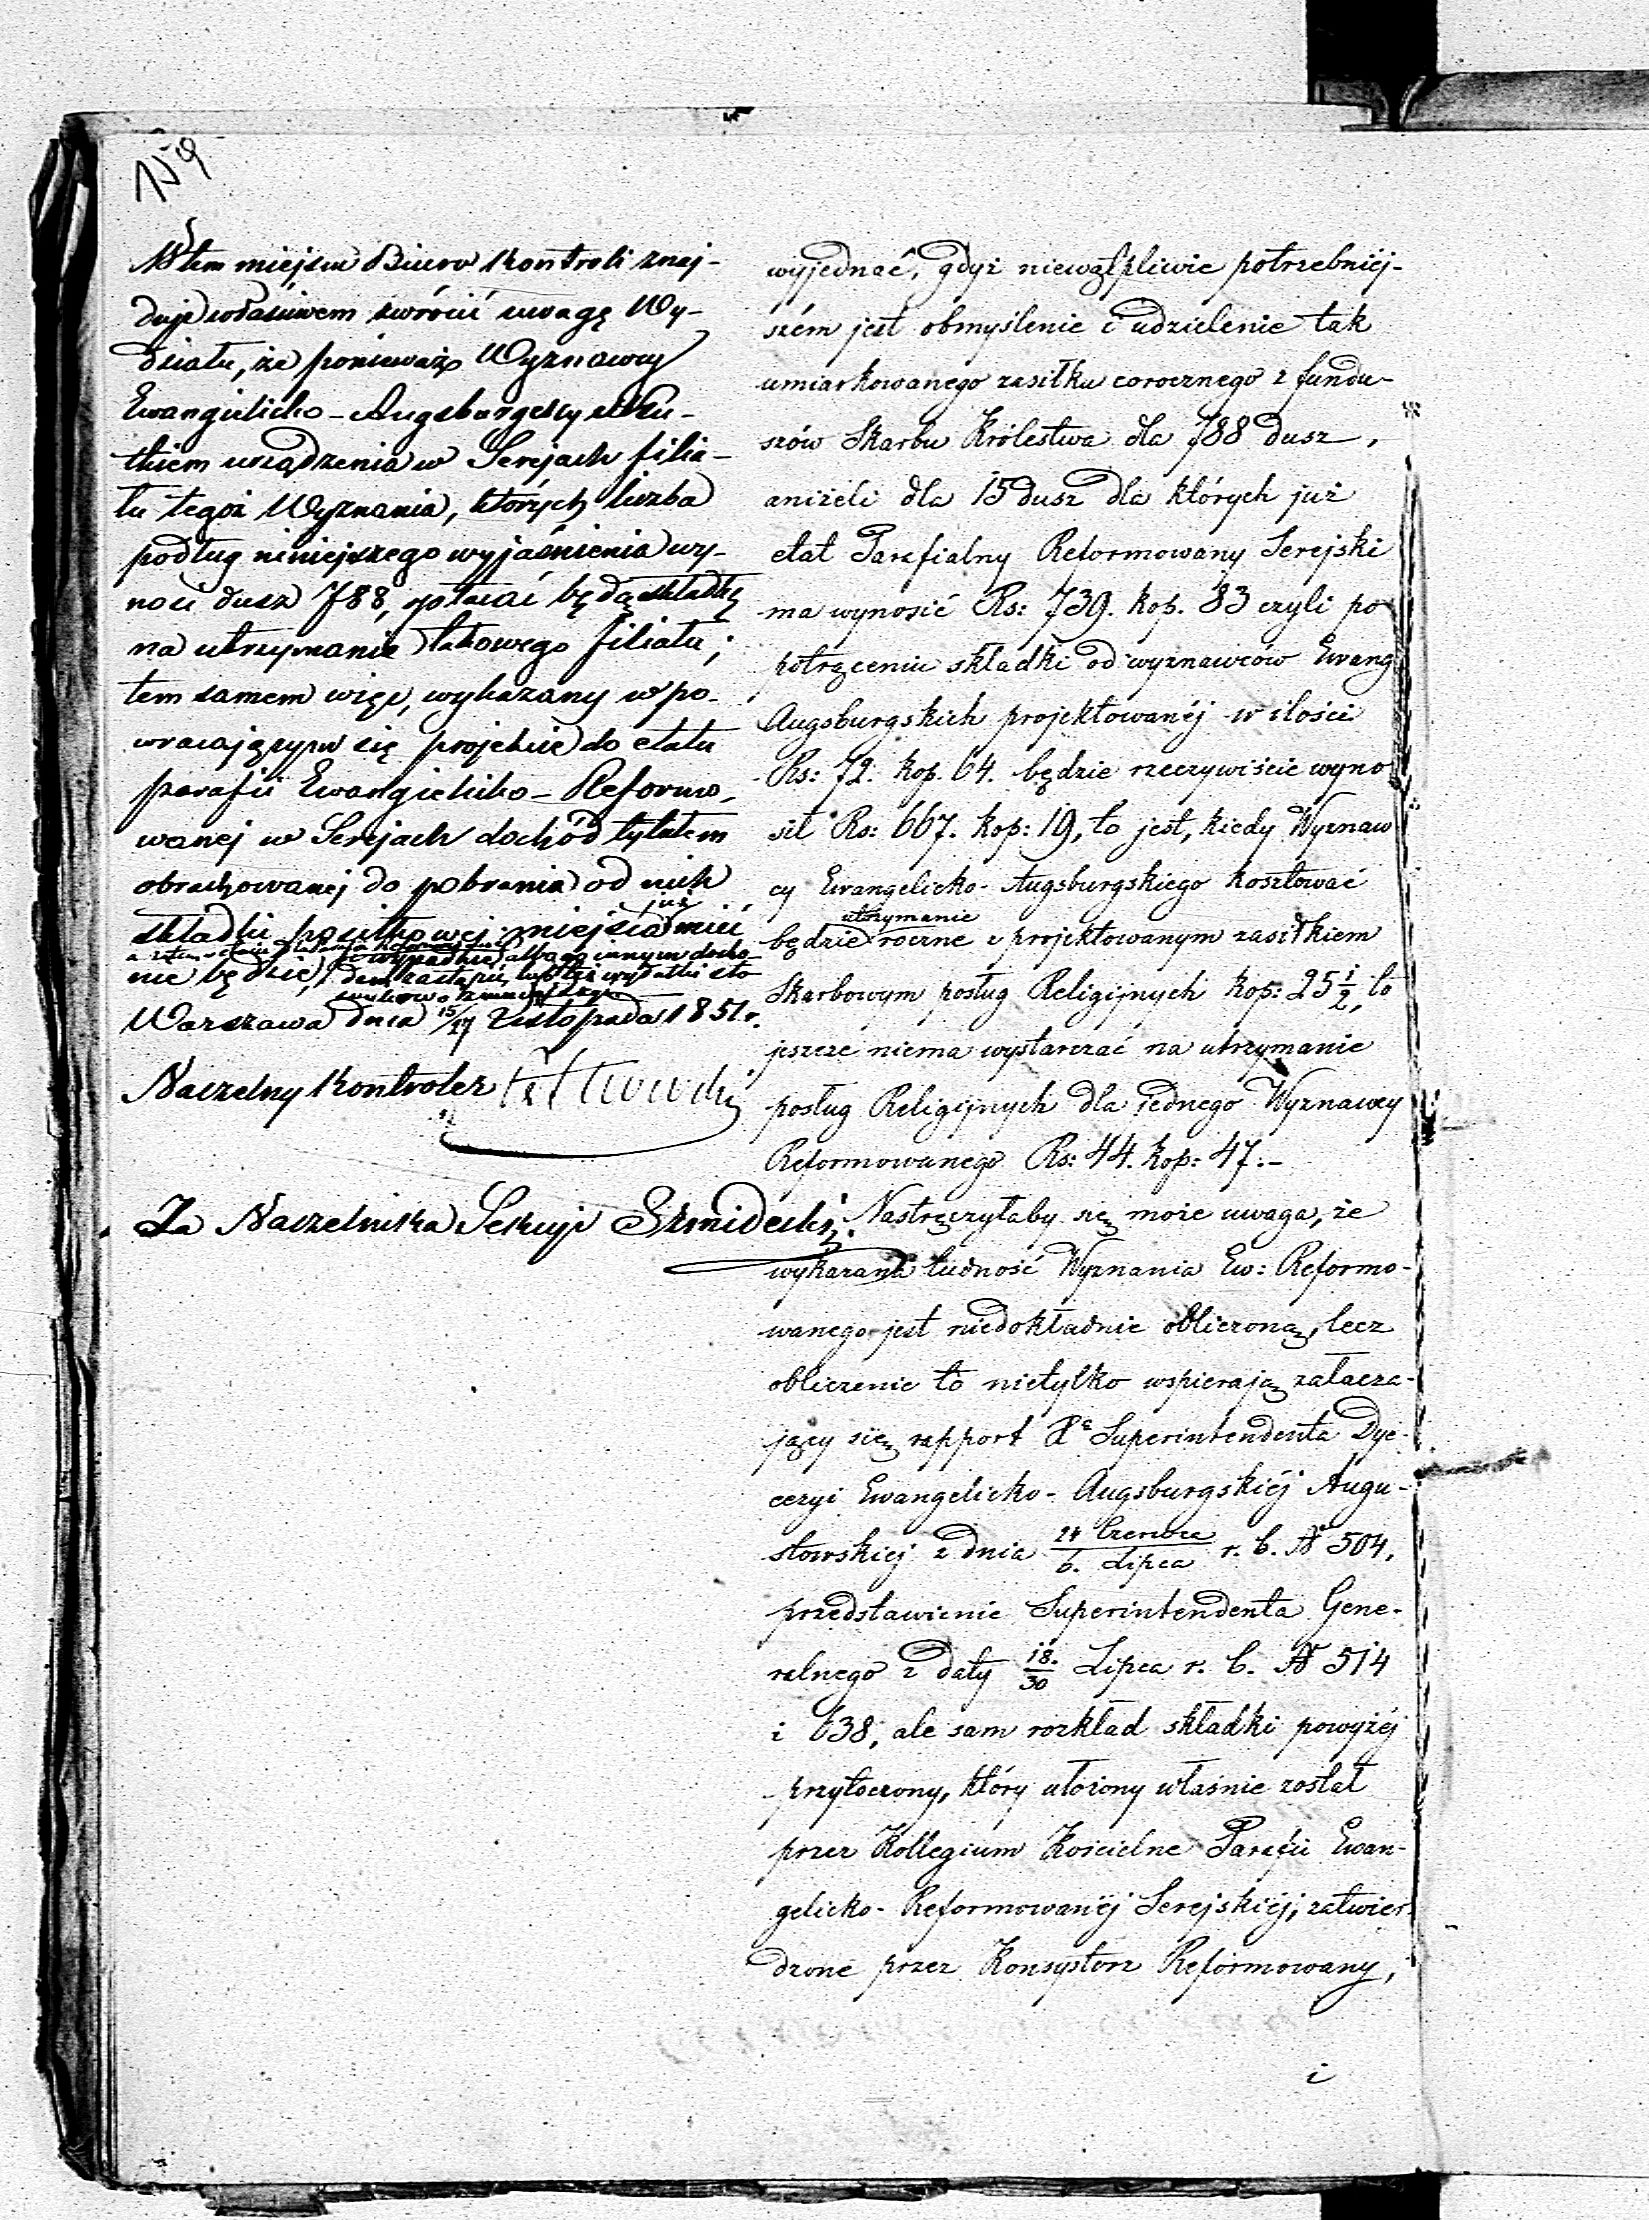 159
W tem miejscu Biuro Kontroli znaj-
duje właściwem zwrócić uwagę Wy-
działu, że ponieważ Wyznawcy
Ewangielicko-Augsburgscy skku-
tkiem urządzenia w Serejach filia-
łu tegoż Wyznania, których liczba
podług niniejszego wyjaśnienia wy-
nosi dusz 788, opłacać będą składkę
na utrzymanie takowego filiału;
tem samem więc, wykazany w po-
wracającym się projekcie do etatu
parafii Ewangielicko-Reformo-
wanej w Serejach dochód tytułem
obrachowanej do pobrania od nich
składki posiłkowej miejsca już mieć
nie będzie, wypadnie albo go innym docho-
dem zastąpić, lub też wydatki sto-
Warszawa dnia 15/27 Listopada 1851 r.
Naczelny Kontroler
Za Naczelnika Sekcyi Szmidecki
wyjednać, gdyż niewątpliwie potrzebniej-
szém jest obmyślenie i udzielenie tak
umiarkowanego zasiłku corocznego z fundu-
szów Skarbu Królestwa dla 788 dusz,
aniżeli dla 15 dusz dla których już
etat Parafialny Reformowany Serejski
ma wynosić Rs: 739. kop. 83 czyli po
potrąceniu składki od wyznawców Ewang
Augsburgskich projektowanéj w ilości
Rs: 72. kop. 64. będzie rzeczywiście wyno
sił Rs: 667. kop: 19, to jest, kiedy Wyznaw
cy Ewangelicko-Augsburgskiego kosztować
będzie utrzymanie roczne z projektowanym zasiłkiem
Skarbowym posług Religijnych kop: 25 1/2, to
jeszcze niema wystarczać na utrzymanie
posług Religijnych dla jednego Wyznawcy
Reformowanego Rs: 44. kop: 47.-
Nastręczyłaby się może uwaga, że
wykazana ludność Wyznania Ew: Reformo-
wanego jest niedokładnie obliczoną, lecz
obliczenie to nietylko wspierają załącza-
jący się rapport Xa Superintendenta Dye-
cezyi Ewangelicko-Augsburgskiéj Augu-
stowskiej z dnia 24 Czerwca/6. Lipca r. b. № 504,
przedstawienie Superintendenta Gene-
ralnego z daty 18./30 Lipca r. b. № 514
i 638, ale sam rozkład składki powyżéj
przytoczony, który ułożony właśnie został
przez Kollegium Kościelne Parafii Ewan-
gelicko-Reformowanéj Serejskiéj, zatwier-
dzone przez Konsystorz Reformowany,
i